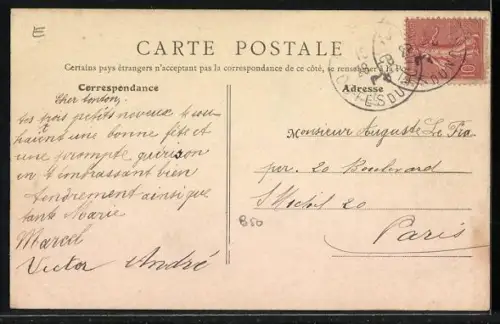 E
CARTE POSTALE
Certains pays étrangers n'acceptant pas la correspondance de ce côté, se renseigner à la
Correspondance
Cher tonton,
tes trois petits neveux te sou
haitent une bonne fête et
une prompte guérison
en t'embrassant bien
tendrement ainsi que
tante Marie
Marcel
Victor André
Adresse
Monsieur Auguste Le
per. 20 Boulevard
St Michel 20
Paris
B50
10